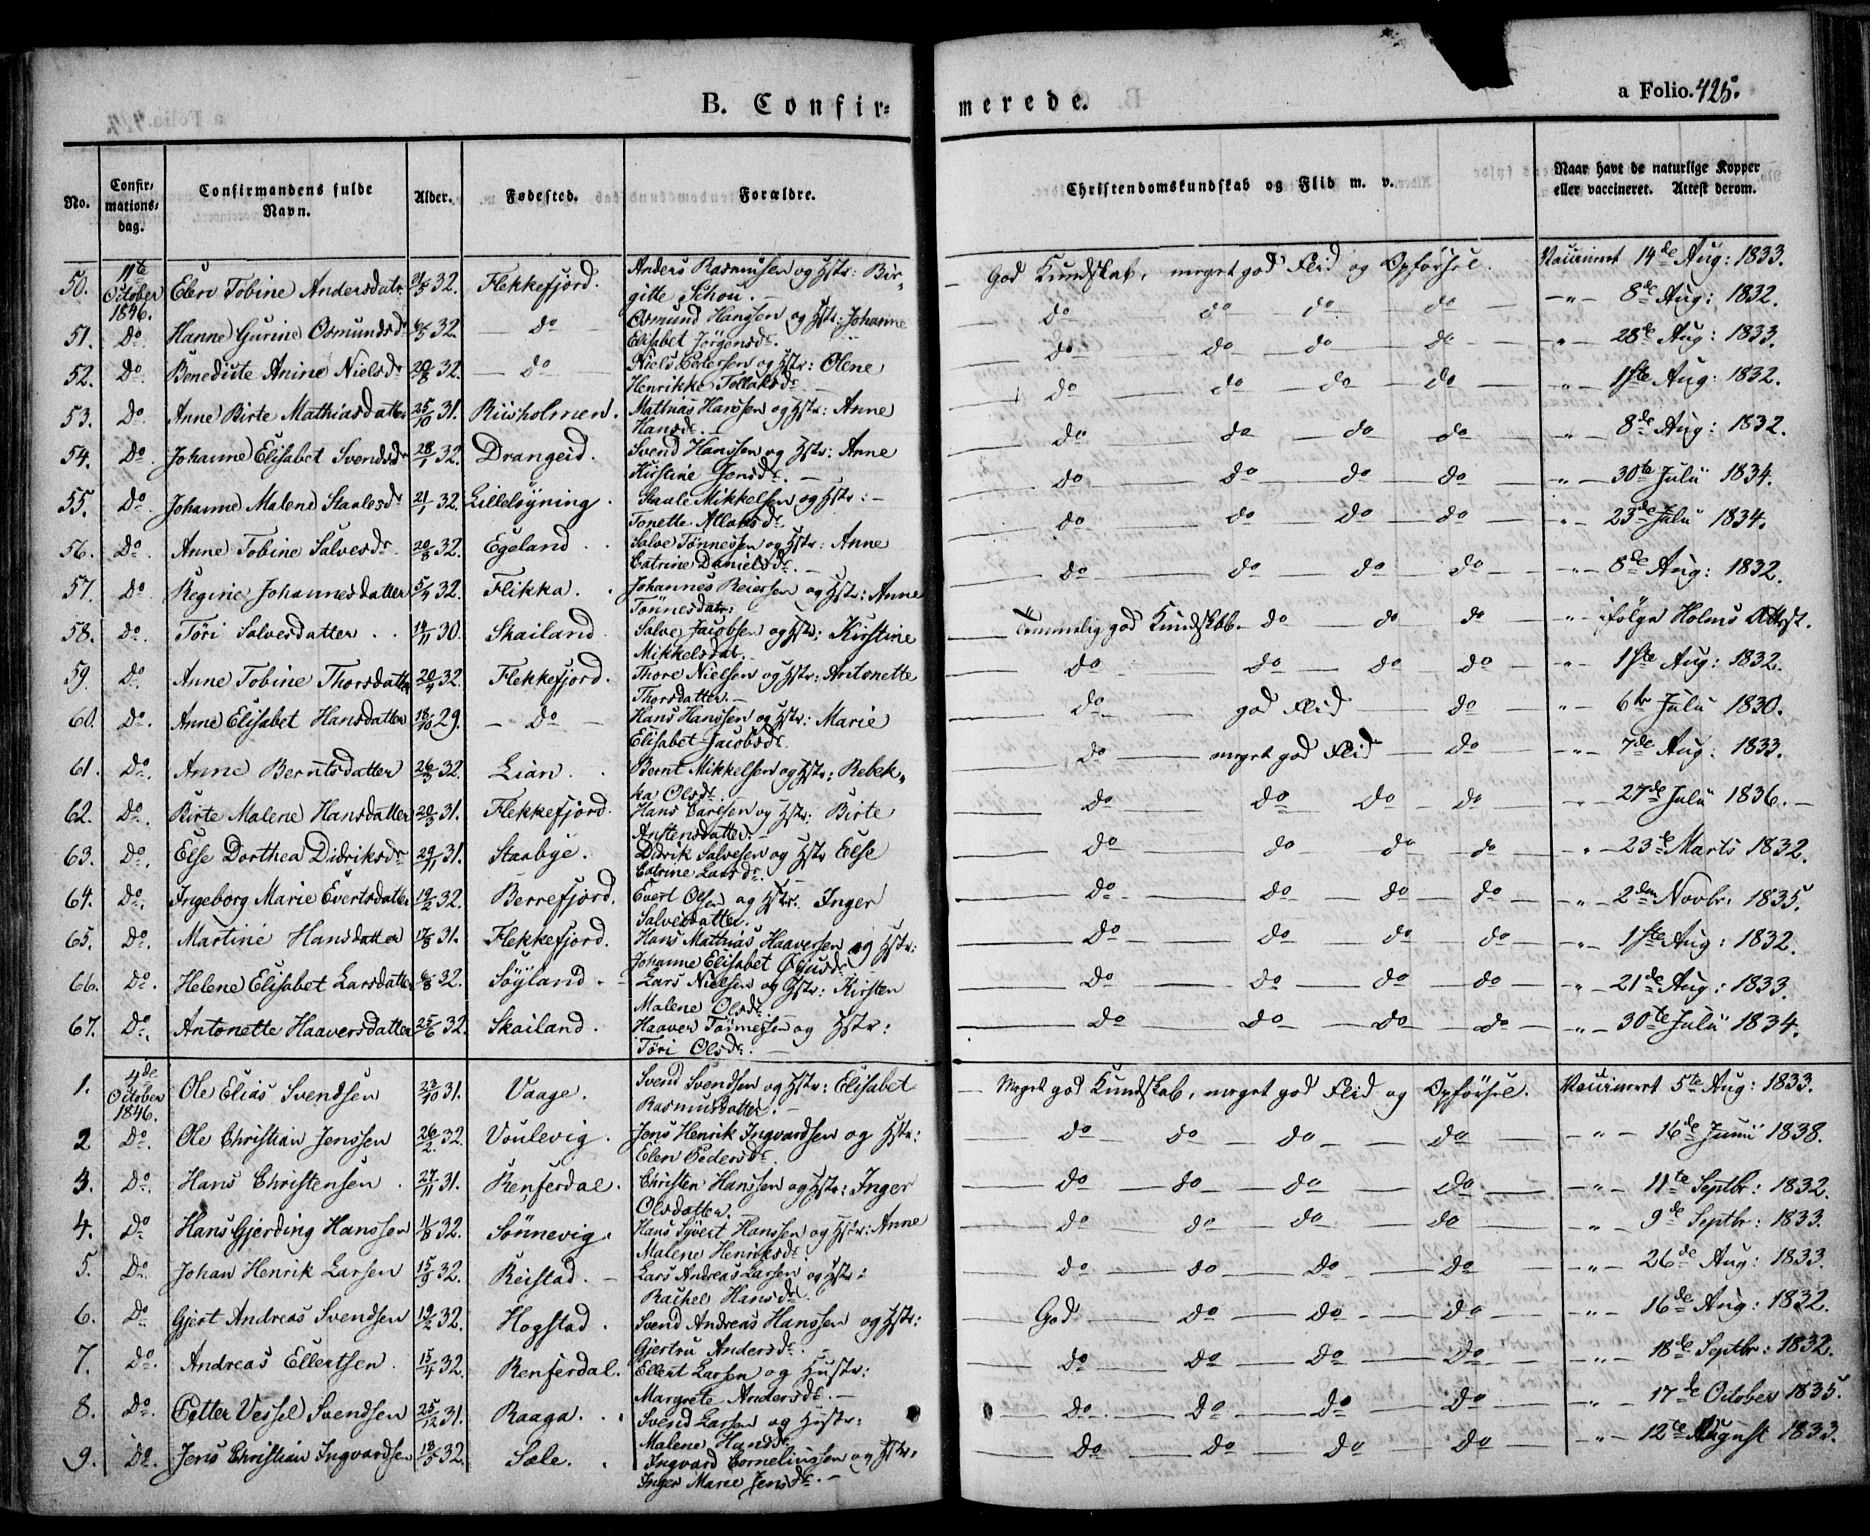 B. Confirmerede.
a Folio. 425.
No. | Confirmationsdag. | Confirmandens fulde Navn. | Alder. | Fødested. | Forældre. | Christendomskundskab og Flid m. v. | Naar havt de naturlige Kopper eller vaccineret. Attest derom.
50. | 11te October 1846. | Elen Tobine Andersdatr | 32. | Flekkefjord. | Anders Rasmusen og Hstr: Birgitte Schou. | God Kundskab, meget god Flid og Opførsel. | Vaccineret 14de Aug: 1833.
51. | Do. | Hanne Gurine Osmundsdr | 32. | do | Osmund Hansen og Hstr: Johanne Elisabet Jørgensdr. | do do do do | " 8de Aug: 1832.
52. | Do. | Benedicte Anine Nielsdr | 20/8 32. | do | Niels Pedersen og Hstr: Olene Henrikke Tollaksdr. | do do do do | " 28de Aug: 1833.
53. | Do. | Anne Birte Mathiasdatter | 25/10 31. | Riisholmen. | Mathias Hansen og Hstr: Anne Hansdr. | do do do do | " 1ste Aug: 1832.
54. | Do. | Johanne Elisabet Svendsdr | 28/1 32. | Drangeid. | Svend Hanssen og Hstr: Anne Kirstine Jensdr. | do do do do | " 8de Aug: 1832.
55. | Do. | Johanne Malene Staalesdr | 21/1 32. | Lilleløyning. | Staale Mikkelsen og Hstr: Tonette | do do do do | " 30te Julii 1834.
56. | Do. | Anne Tobine Salvesdr. | 20/8 32. | Egeland. | Salve Tønnessen og Hstr: Anne Catrine Danielsdr. | do do do do | " 23de Julii 1834.
57. | Do. | Regine Johannesdatter | 5/4 32. | Flikka. | Johannes Reiersen og Hstr: Anne Tønnesdatr: | do do do do | " 8de Aug: 1832.
58. | Do. | Tøri Salvesdatter | 19/11 30. | Skailand. | Salve Jacobsen og Hstr: Kirstine Mikkelsdat. | Temmelig god Kundskab. do do do | " ifølge Holms Attest.
59. | Do. | Anne Tobine Thorsdatter | 20/4 32. | Flekkefjord. | Thore Nielsen og Hstr: Antonette Thorsdatter. | do do do do | " 1ste Aug: 1832.
60. | Do. | Anne Elisabet Hansdatter | 18/10 29. | do | Hans Hanssen og Hstr: Marie Elisabet Jacobsdr. | do god Flid do | " 6te Julii 1830.
61. | Do. | Anne Berntsdatter | 26/5 32. | Lian. | Bernt Mikkelsen og Hstr: Rebekka Olsdr. | do meget god Flid do | " 7de Aug: 1833.
62. | Do. | Birte Malene Hansdatter | 20/3 31. | Flekkefjord. | Hans Carlsen og Hstr: Birte Anstensdatter. | do do do do | " 27de Julii 1836.
63. | Do. | Else Dorthea Didriksdr | 29/11 31. | Staabye. | Didrik Salvesen og Hstr Else Catrine Larsdr. | do do do do | " 23de Marts 1832.
64. | Do. | Ingeborg Marie Evertsdatter | 19/2 32. | Berrefjord. | Evert Olsen og Hstr. Inger Salvesdatter. | do do do do | " 2den Novbr. 1835.
65. | Do. | Martine Hansdatter | 17/8 31. | Flekkefjord. | Hans Mathias Haaversen og Hstr: Johanne Elisabet | do do do do | " 1ste Aug: 1832.
66. | Do. | Helene Elisabet Larsdatter | 6/8 32. | Søyland. | Lars Nielsen og Hstr: Kirsten Malene Olsdr. | do do do do | " 21de Aug: 1833.
67. | Do. | Antonette Haaversdatter | 25/6 32. | Skailand. | Haaver Tønnessen og Hstr: Tøri Olsdr. | do do do do | " 30te Julii 1834.
1. | 4de October 1846. | Ole Elias Svendsen | 23/10 31. | Vaage. | Svend Svendsen og Hstr: Elisabet Rasmusdatter. | Meget god Kundskab, meget god Flid og Opførsel. | Vaccineret 5te Aug: 1833.
2 | Do. | Ole Christian Jenssen | 26/2 32. | Voulevig. | Jens Henrik Ingvardsen og Hstr: Elen Pedersdr. | do do do do | " 16de Junii 1838.
3. | Do. | Hans Christensen | 27/11 31. | Renferdal. | Christen Hanssen og Hstr: Inger Olsdatter. | do do do do | " 11te Septbr: 1832.
4. | Do | Hans Gjerding Hanssen | 11/8 32. | Sønnevig. | Hans Syvert Hanssen og Hstr: Anne Malene Henriksdr. | do do do do | " 9de Septbr: 1833.
5. | Do. | Johan Henrik Larsen | 15/9 32. | Reistad. | Lars Andreas Larsen og Hstr: Rachel Hansdr. | do do do do | " 26de Aug: 1833.
6. | Do | Gjert Andreas Svendsen | 19/2 32. | Hogstad. | Svend Andreas Hanssen og Hstr: Gjertru Andersdr. | God do do do | " 16de Aug: 1832.
7. | Do. | Andreas Ellertsen | 15/4 32. | Renferdal. | Ellert Larsen og Hustr: Margrete Andersdr. | do do do do | " 18de Septbr: 1832.
8. | Do. | Petter Vessel Svendsen | 25/12 31. | Raaga. | Svend Larsen og Hustr: Malene Hansdr. | do do do do | 17de October 1835.
9. | Do. | Jens Christian Ingvardsen | 13/5 32. | Sæle. | Ingvard Corneliussen og Hstr. Inger Marie Jensdr. | do do do do | " 12te August 1833.